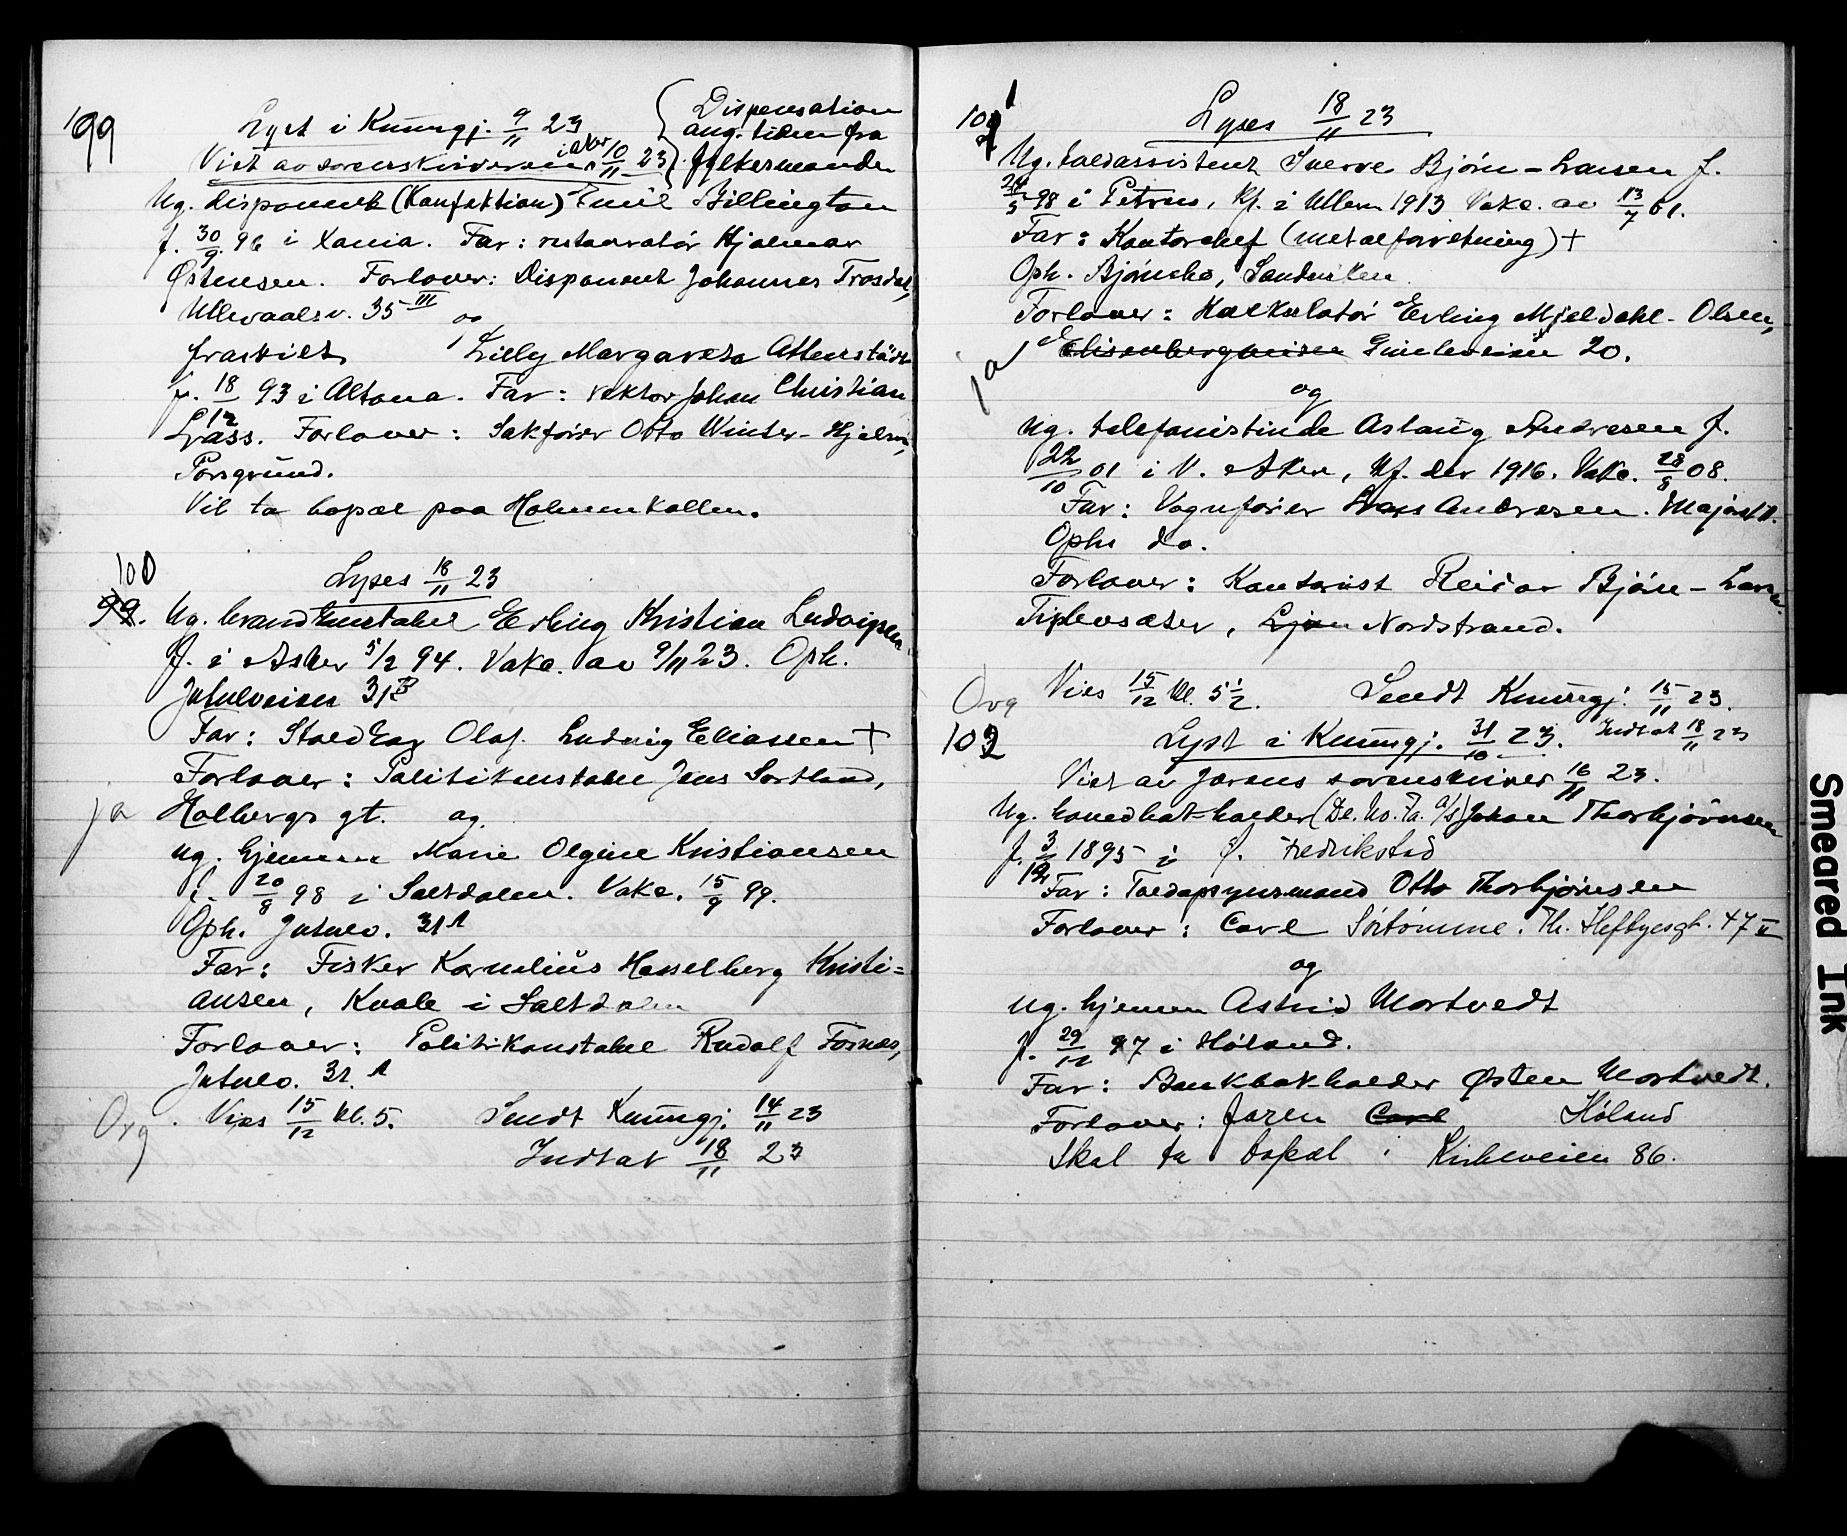 99 Lyst i Kunngj. 9/11 23 Dispensation
ang. tiden fra
Viet av sorenskriveren i Aker 10/11 23 fylkesmanden
Ug. disponent (Konfektion) Emil Billington
f. 30/9 96 i Xania. Far: restauratør Hjalmar
Østensen. Forlover: Disponent Johannes Trosdal,
Ullevaalsv. 35 III og
fraskilt Lilly Margareta
f. 18/12 93 i Altona. Far: rektor Johan Christian
Grass. Forlover: Sakfører Otto Winter-Hjelm,
Porsgrund.
Vil ta bopæl paa Holmenkollen.
100
99. Lyses 18/11 23
Ug. brandkonstabel Erling Kristian Ludvigsen
f. i Asker 5/2 94. Vakc. av 9/11 23. Oph.
Jutulveien 31 B
Far: Staldkar Olaf Ludvig Eliassen +
Forlover: Politikonstabel Jens Sortland,
ja Holbergs gt. og
ug. hjemme Marie Olgine Kristiansen
f. 20/8 98 i Saltdalen. Vakc. 15/9 99.
Oph. Jutulv. 31 A
Far: Fisker Kornelius Hasselberg Kristi=
ansen, Kvale i Saltdalen
Forlover: Politikonstabel Rudolf Fornæs,
Jutulv. 31 A
Org. Vies 15/12 kl. 5. Sendt Kunngj. 14/11 23
Indtat 18/11 23
101 Lyses 18/11 23
Ug. toldassistent Sverre Bjørn-Larsen f.
24/5 98 i Petrus, Kf. i Ullern 1913 Vakc. av 13/7 01.
Far: Kontorchef (metalforretning) +
Oph. Bjørnebo, Sandviken
Forlover: Kalkulatør Erling Mjeldahl-Olsen,
ja Elisenbergveien Gimleveien 20.
og
ug. telefonistinde Aslaug Andresen f.
22/10 01 i V. Aker, Kf. der 1916. Vakc. 28/8 08.
Far: Vognfører Lars Andresen. Majorst.
Oph. do.
Forlover: Kontorist Reidar Bjørn-Larsen
Ljan Nordstrand.
Org Vies 15/12 kl. 5 1/2. Sendt Kunngj. 15/11 23.
102 Lyst i Kunngj. 31/10 23. Indtat 18/11 23
Viet av Jærens sorenskriver 16/11 23.
Ug. hovedbok=holder (De. No. Fa. a/s) Johan Thorbjørnsen
f. 3/12 1895 i Ø. Fredrikstad
Far: Toldopsynsmand Otto Thorbjørnsen
Forlover: Carl Sørtømme. Th. Heftyesgt. 47 II
og
ug. hjemme Astrid Mortvedt
f. 29/12 97 i Høland.
Far: Bankbokholder Østen Mortvedt.
Forlover: faren Carl Høland
Skal ta bopæl i Kirkeveien 86.
Smeared Ink